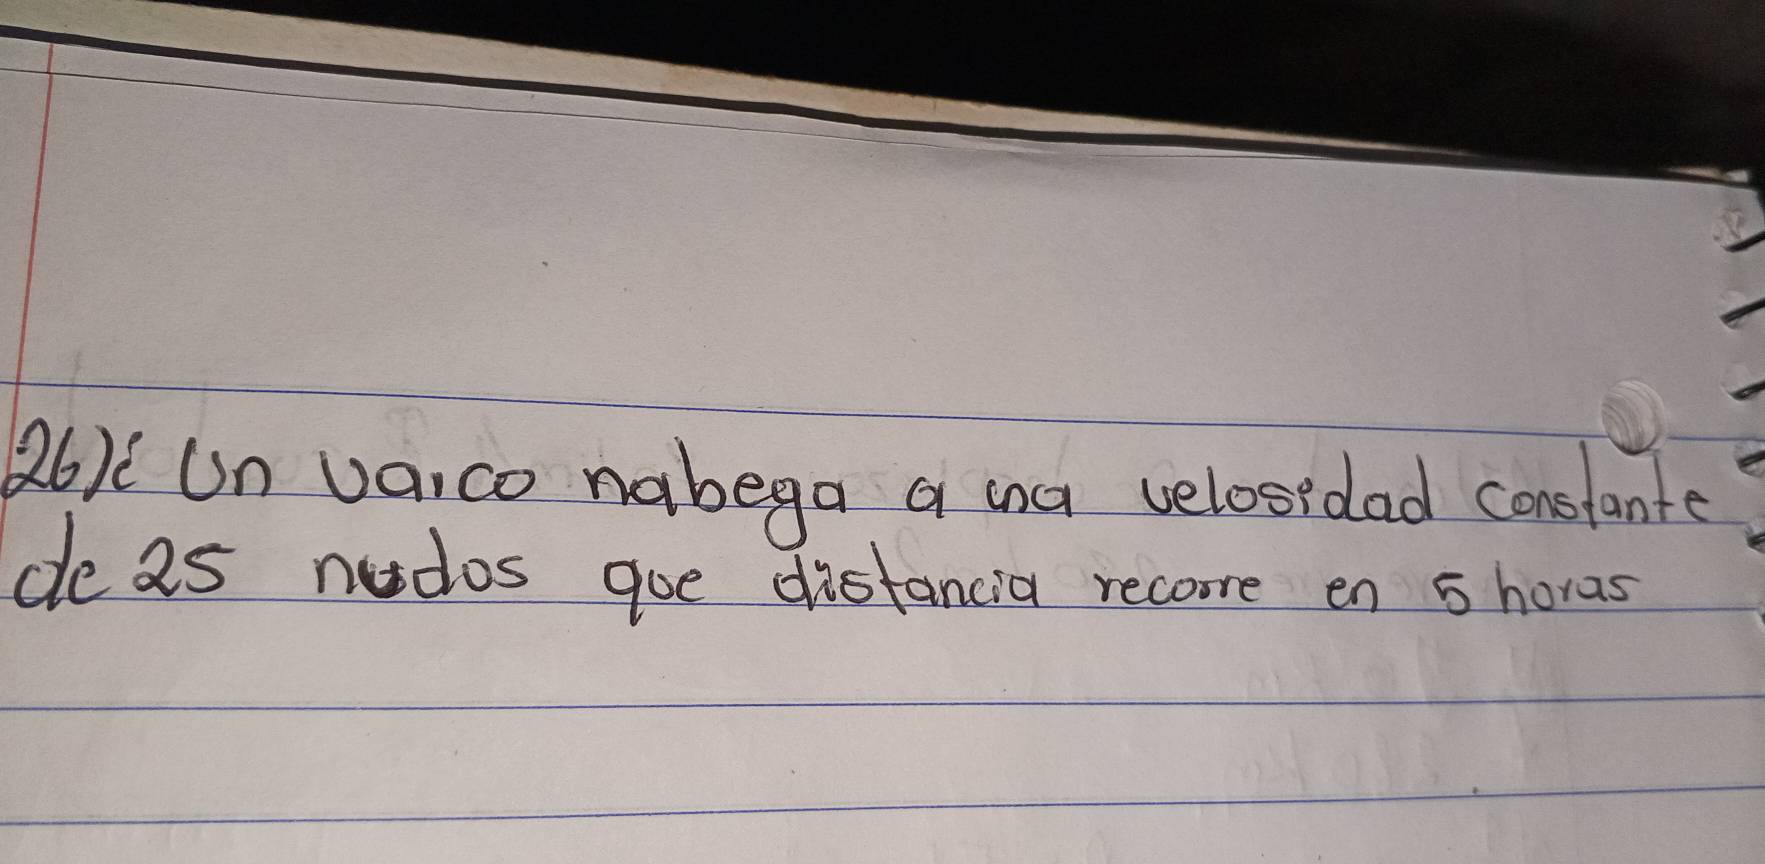 26)¿ Un varco nabega a una velosidad constante
de 25 nudos que distancia recorre en 5 horas